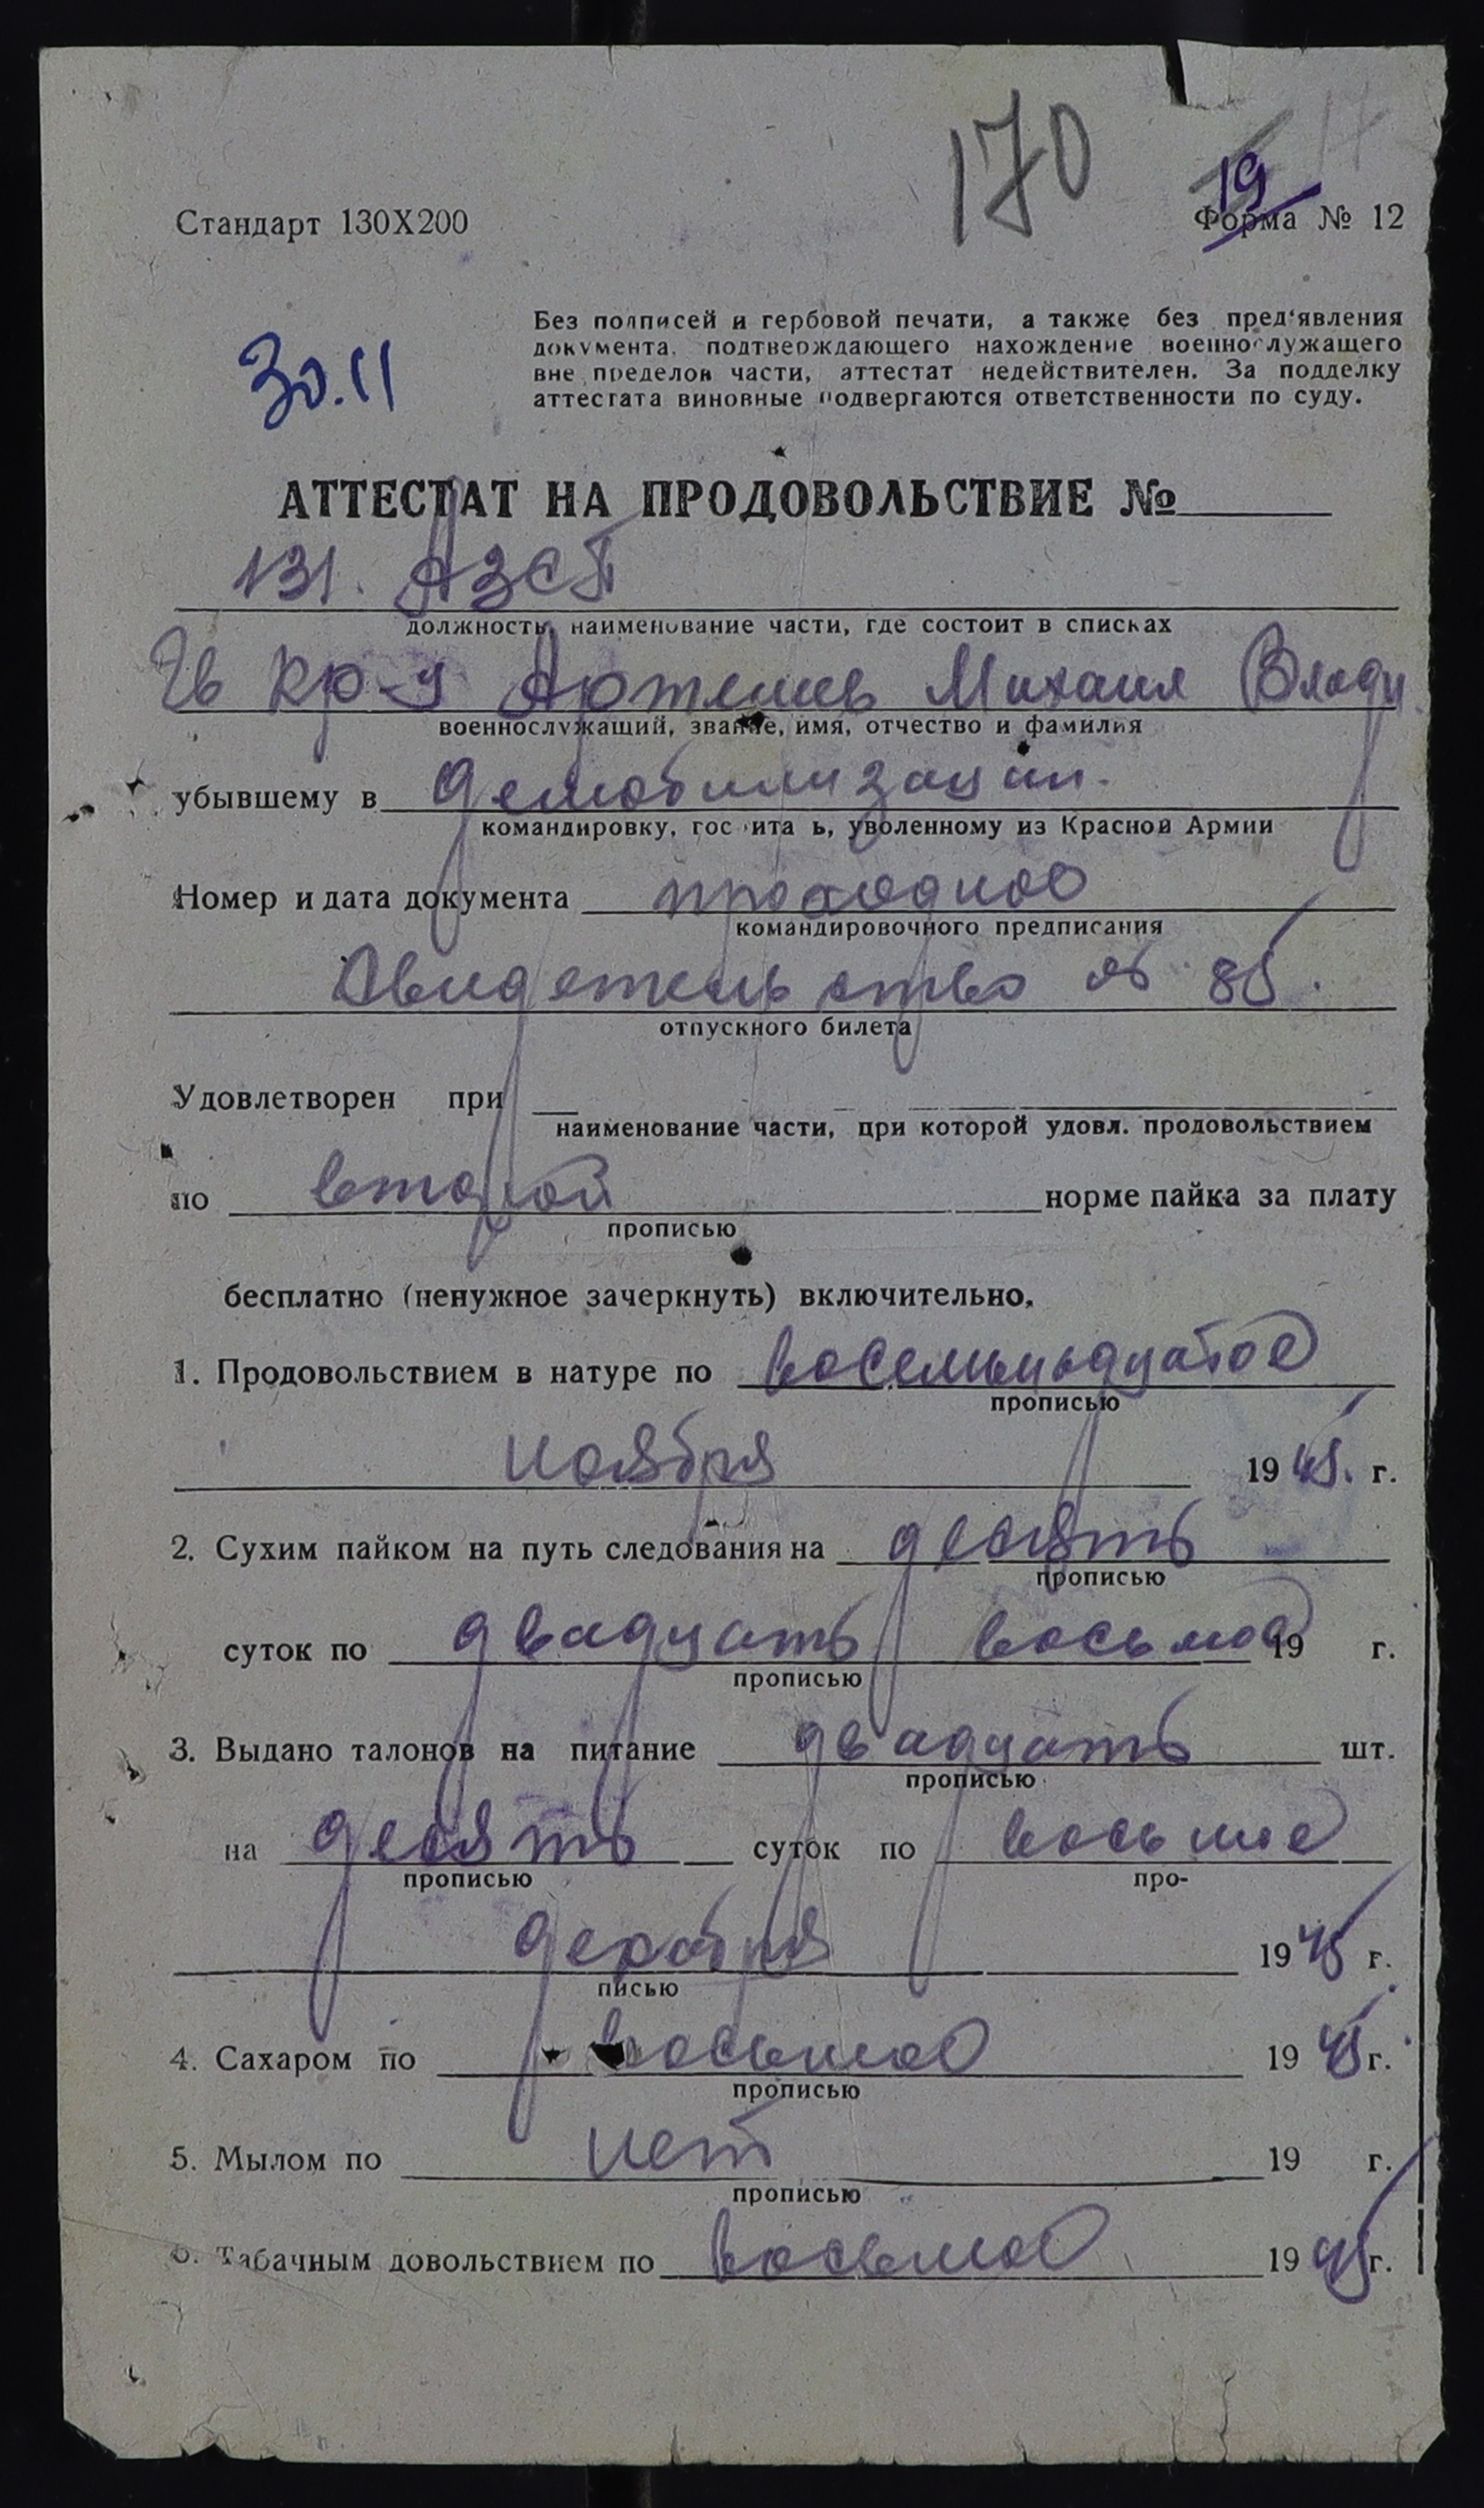 170
19
Стандарт 130Х200
Форма № 12
30.11
Без подписей и гербовой печати, а также без пред'явления
документа, подтверждающего нахождение военнослужащего
вне пределов части, аттестат недействителен. За подделку
аттестата виновные подвергаются ответственности по суду.
АТТЕСТАТ НА ПРОДОВОЛЬСТВИЕ №
131. АЗСП
должность, наименование части, где состоит в списках
Гв кр-ц Михаил Влади
военнослужащий, звание, имя, отчество и фамилия
убывшему в демобилизации.
командировку, гос ита ь, уволенному из Красной Армии
Номер и дата документа проходное
командировочного предписания
Свидетельство № 85.
отпускного билета
Удовлетворен при
наименование части, при которой удовл. продовольствием
по второй норме пайка за плату
прописью
бесплатно (ненужное зачеркнуть) включительно,
1. Продовольствием в натуре по восемьнадцатое
прописью
ноября 1945. г.
2. Сухим пайком на путь следования на десять
прописью
суток по двадцать восьмое 19 г.
прописью
3. Выдано талонов на питание двадцать шт.
прописью
на десять суток по восьмое
прописью про-
декабря 1945 г.
писью
4. Сахаром по восьмое 1945 г.
прописью
5. Мылом по нет 19 г.
прописью
6. Табачным довольствием по восьмое 1945 г.